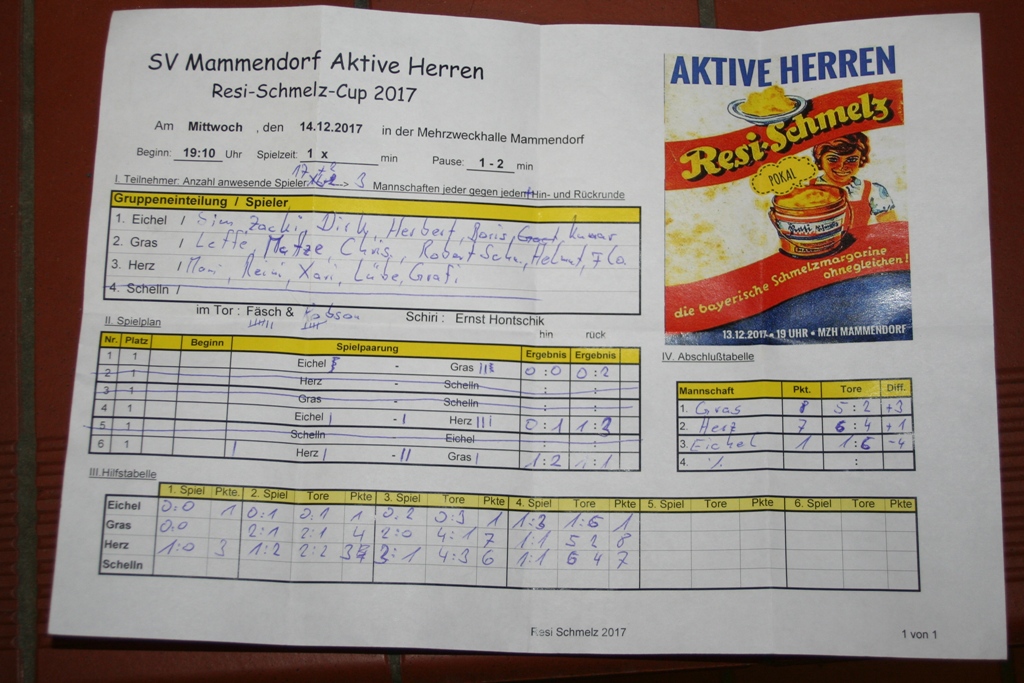 SV Mammendorf Aktive Herren
Resi-Schmelz-Cup 2017
Am Mittwoch , den 14.12.2017 in der Mehrzweckhalle Mammendorf
Beginn: 19:10 Uhr Spielzeit: 1 x min Pause: 1 - 2 min
I. Teilnehmer: Anzahl anwesende Spieler 17+2 --> 3 Mannschaften jeder gegen jeden Hin- und Rückrunde
Gruppeneinteilung / Spieler
1. Eichel / Sim, Zachi, Dirk, Herbert, Boris, Kumar
2. Gras / Leffe, Matze, Chris, Robert Schn, Helmut, Flo
3. Herz / Moni, Reini, Xari, Lübe, Grafi
4. Schelln /
im Tor : Fäsch & Schiri : Ernst Hontschik
II. Spielplan
hin rück
Nr. Platz Beginn Spielpaarung Ergebnis Ergebnis
1 1 Eichel - Gras 0 : 0 0 : 2
2 1 Herz - Schelln : :
3 1 Gras - Schelln : :
4 1 Eichel - Herz 0 : 1 1 : 3
5 1 Schelln - Eichel : :
6 1 Herz - Gras 1 : 2 1 : 1
III. Hilfstabelle
1. Spiel Pkte. 2. Spiel Tore Pkte 3. Spiel Tore Pkte 4. Spiel Tore Pkte 5. Spiel Tore Pkte 6. Spiel Tore Pkte
Eichel 0:0 1 0:1 0:1 1 0:2 0:3 1 1:3 1:6 1
Gras 0:0 2:1 2:1 4 2:0 4:1 7 1:1 5 2 8
Herz 1:0 3 1:2 2:2 3 3:1 4:3 6 1:1 6 4 7
Schelln
AKTIVE HERREN
Resi-Schmelz
POKAL
Resi Schmelz
die bayerische Schmelzmargarine
ohnegleichen!
13.12.2017 • 19 UHR • MZH MAMMENDORF
IV. Abschlußtabelle
Mannschaft Pkt. Tore Diff.
1. Gras 8 5 : 2 +3
2. Herz 7 6 : 4 +1
3. Eichel 1 1 : 6 -4
4. % :
Resi Schmelz 2017
1 von 1